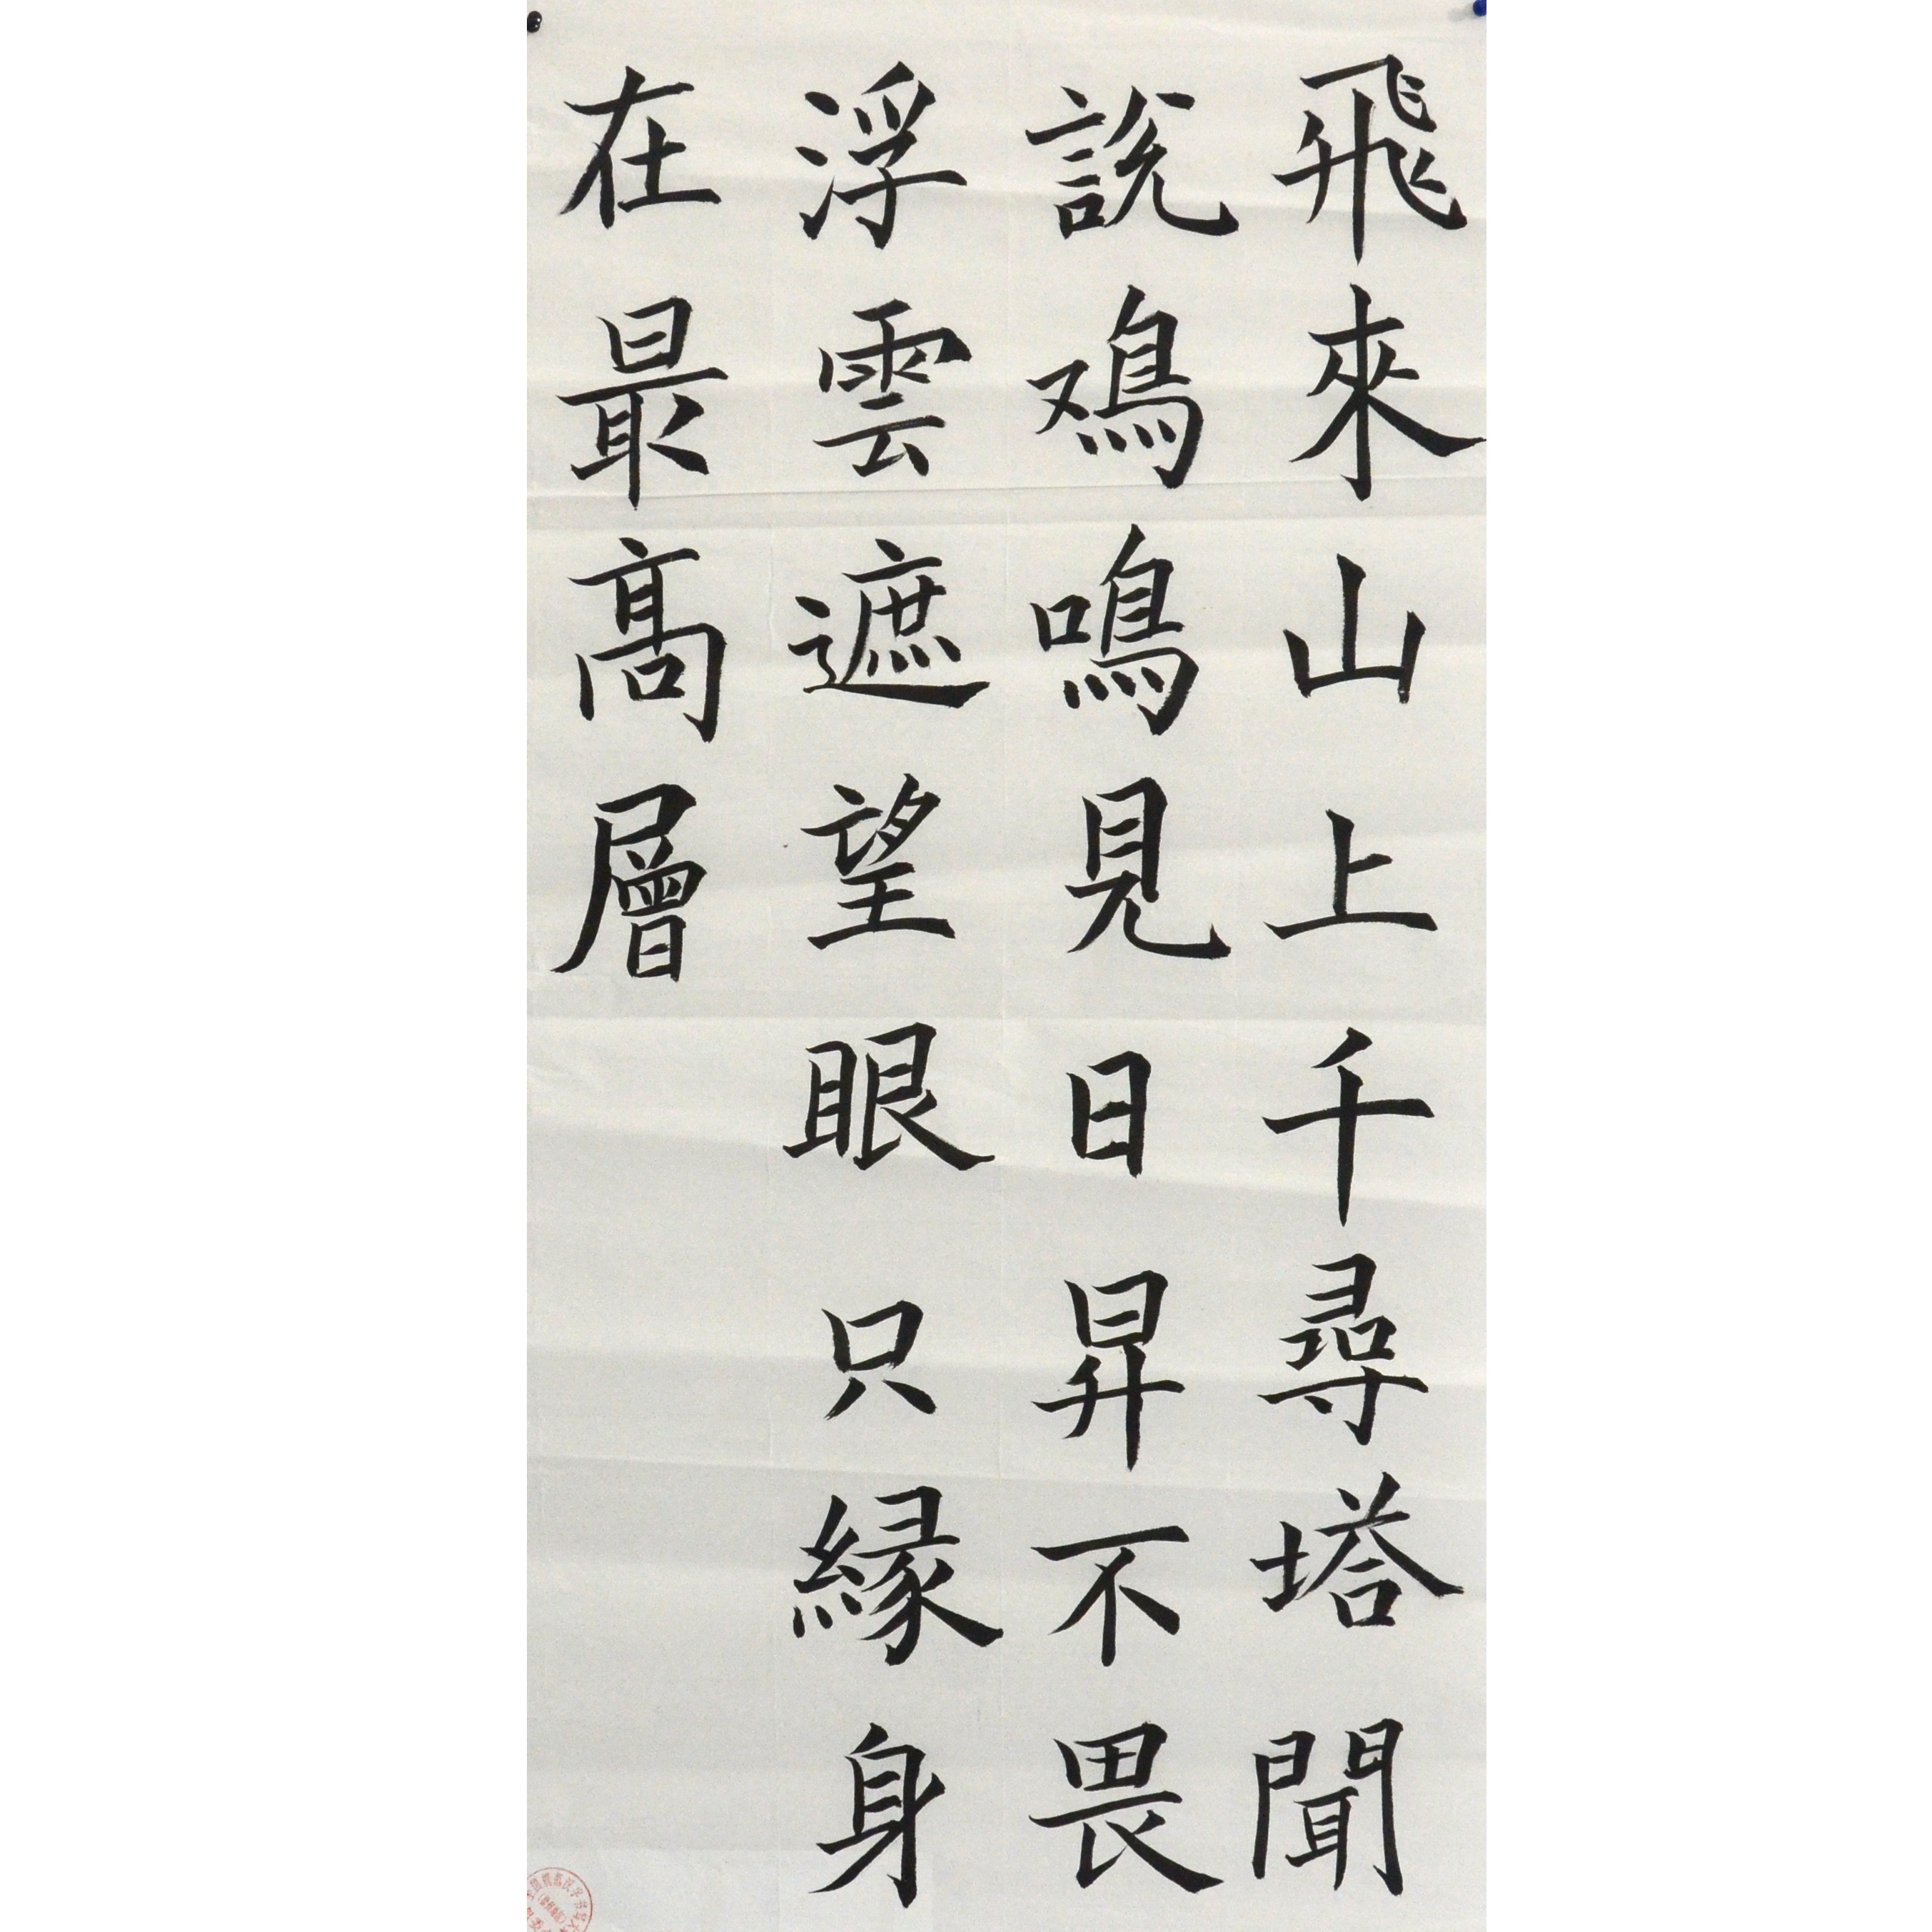 飛來山上千尋塔聞
說鳮鳴見日昇不畏
浮雲遮望眼只縁身
在最髙層